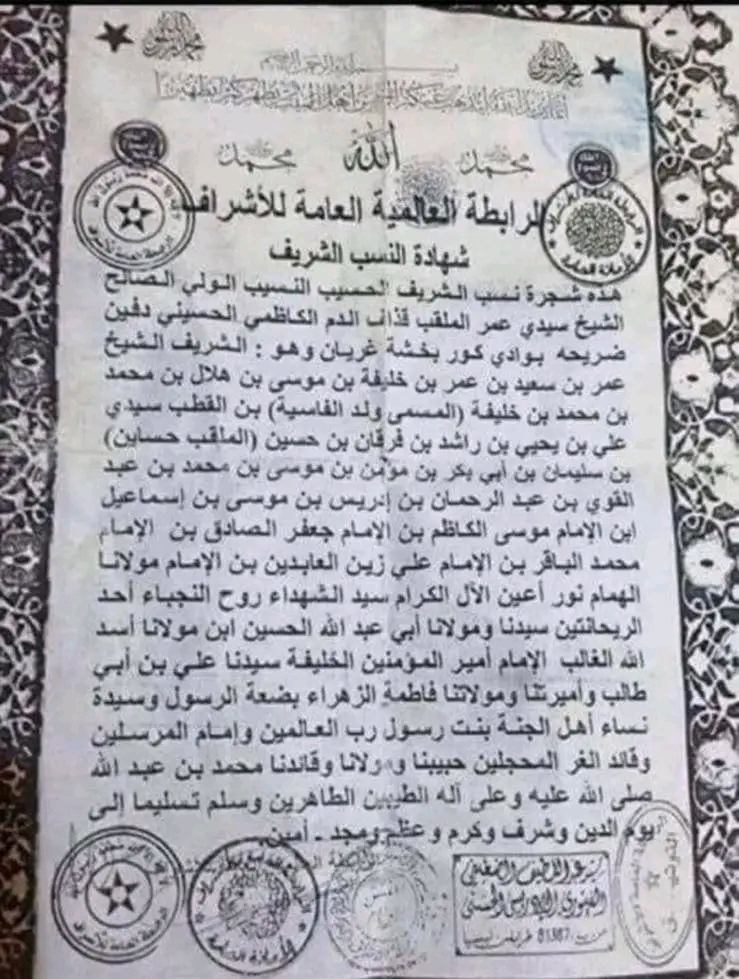 بسم الله الرحمن الرحيم
محمد الله محمد
الرابطة العالمية العامة للأشراف
شهادة النسب الشريف
هذه شجرة نسب الشريف الحسيب النسيب الولي الصالح
الشيخ سيدي عمر الملقب قذاف الدم الكاظمي الحسيني دفين
ضريحه بوادي كور بخشة غريان وهو : الشريف الشيخ
عمر بن سعيد بن عمر بن خليفة بن موسى بن هلال بن محمد
بن محمد بن خليفة (المسمى ولد الفاسية) بن القطب سيدي
علي بن يحيى بن راشد بن فرقان بن حسين (الملقب حسابن)
بن سليمان بن أبي بكر بن مؤمن بن موسى بن محمد بن عبد
القوي بن عبد الرحمان بن إدريس بن موسى بن إسماعيل
ابن الإمام موسى الكاظم بن الإمام جعفر الصادق بن الإمام
محمد الباقر بن الإمام علي زين العابدين بن الإمام مولانا
الهمام نور أعين الآل الكرام سيد الشهداء روح النجباء أحد
الريحانتين سيدنا ومولانا أبي عبد الله الحسين ابن مولانا أسد
الله الغالب الإمام أمير المؤمنين الخليفة سيدنا علي بن أبي
طالب وأميرتنا ومولاتنا فاطمة الزهراء بضعة الرسول وسيدة
نساء أهل الجنة بنت رسول رب العالمين وإمام المرسلين
وقائد الغر المحجلين حبيبنا ومولانا وقائدنا محمد بن عبد الله
صلى الله عليه وعلى آله الطيبين الطاهرين وسلم تسليما إلى
يوم الدين وشرف وكرم وعظم ومجد - آمين.
الرابطة العامة للأشراف
الأمانة العامة